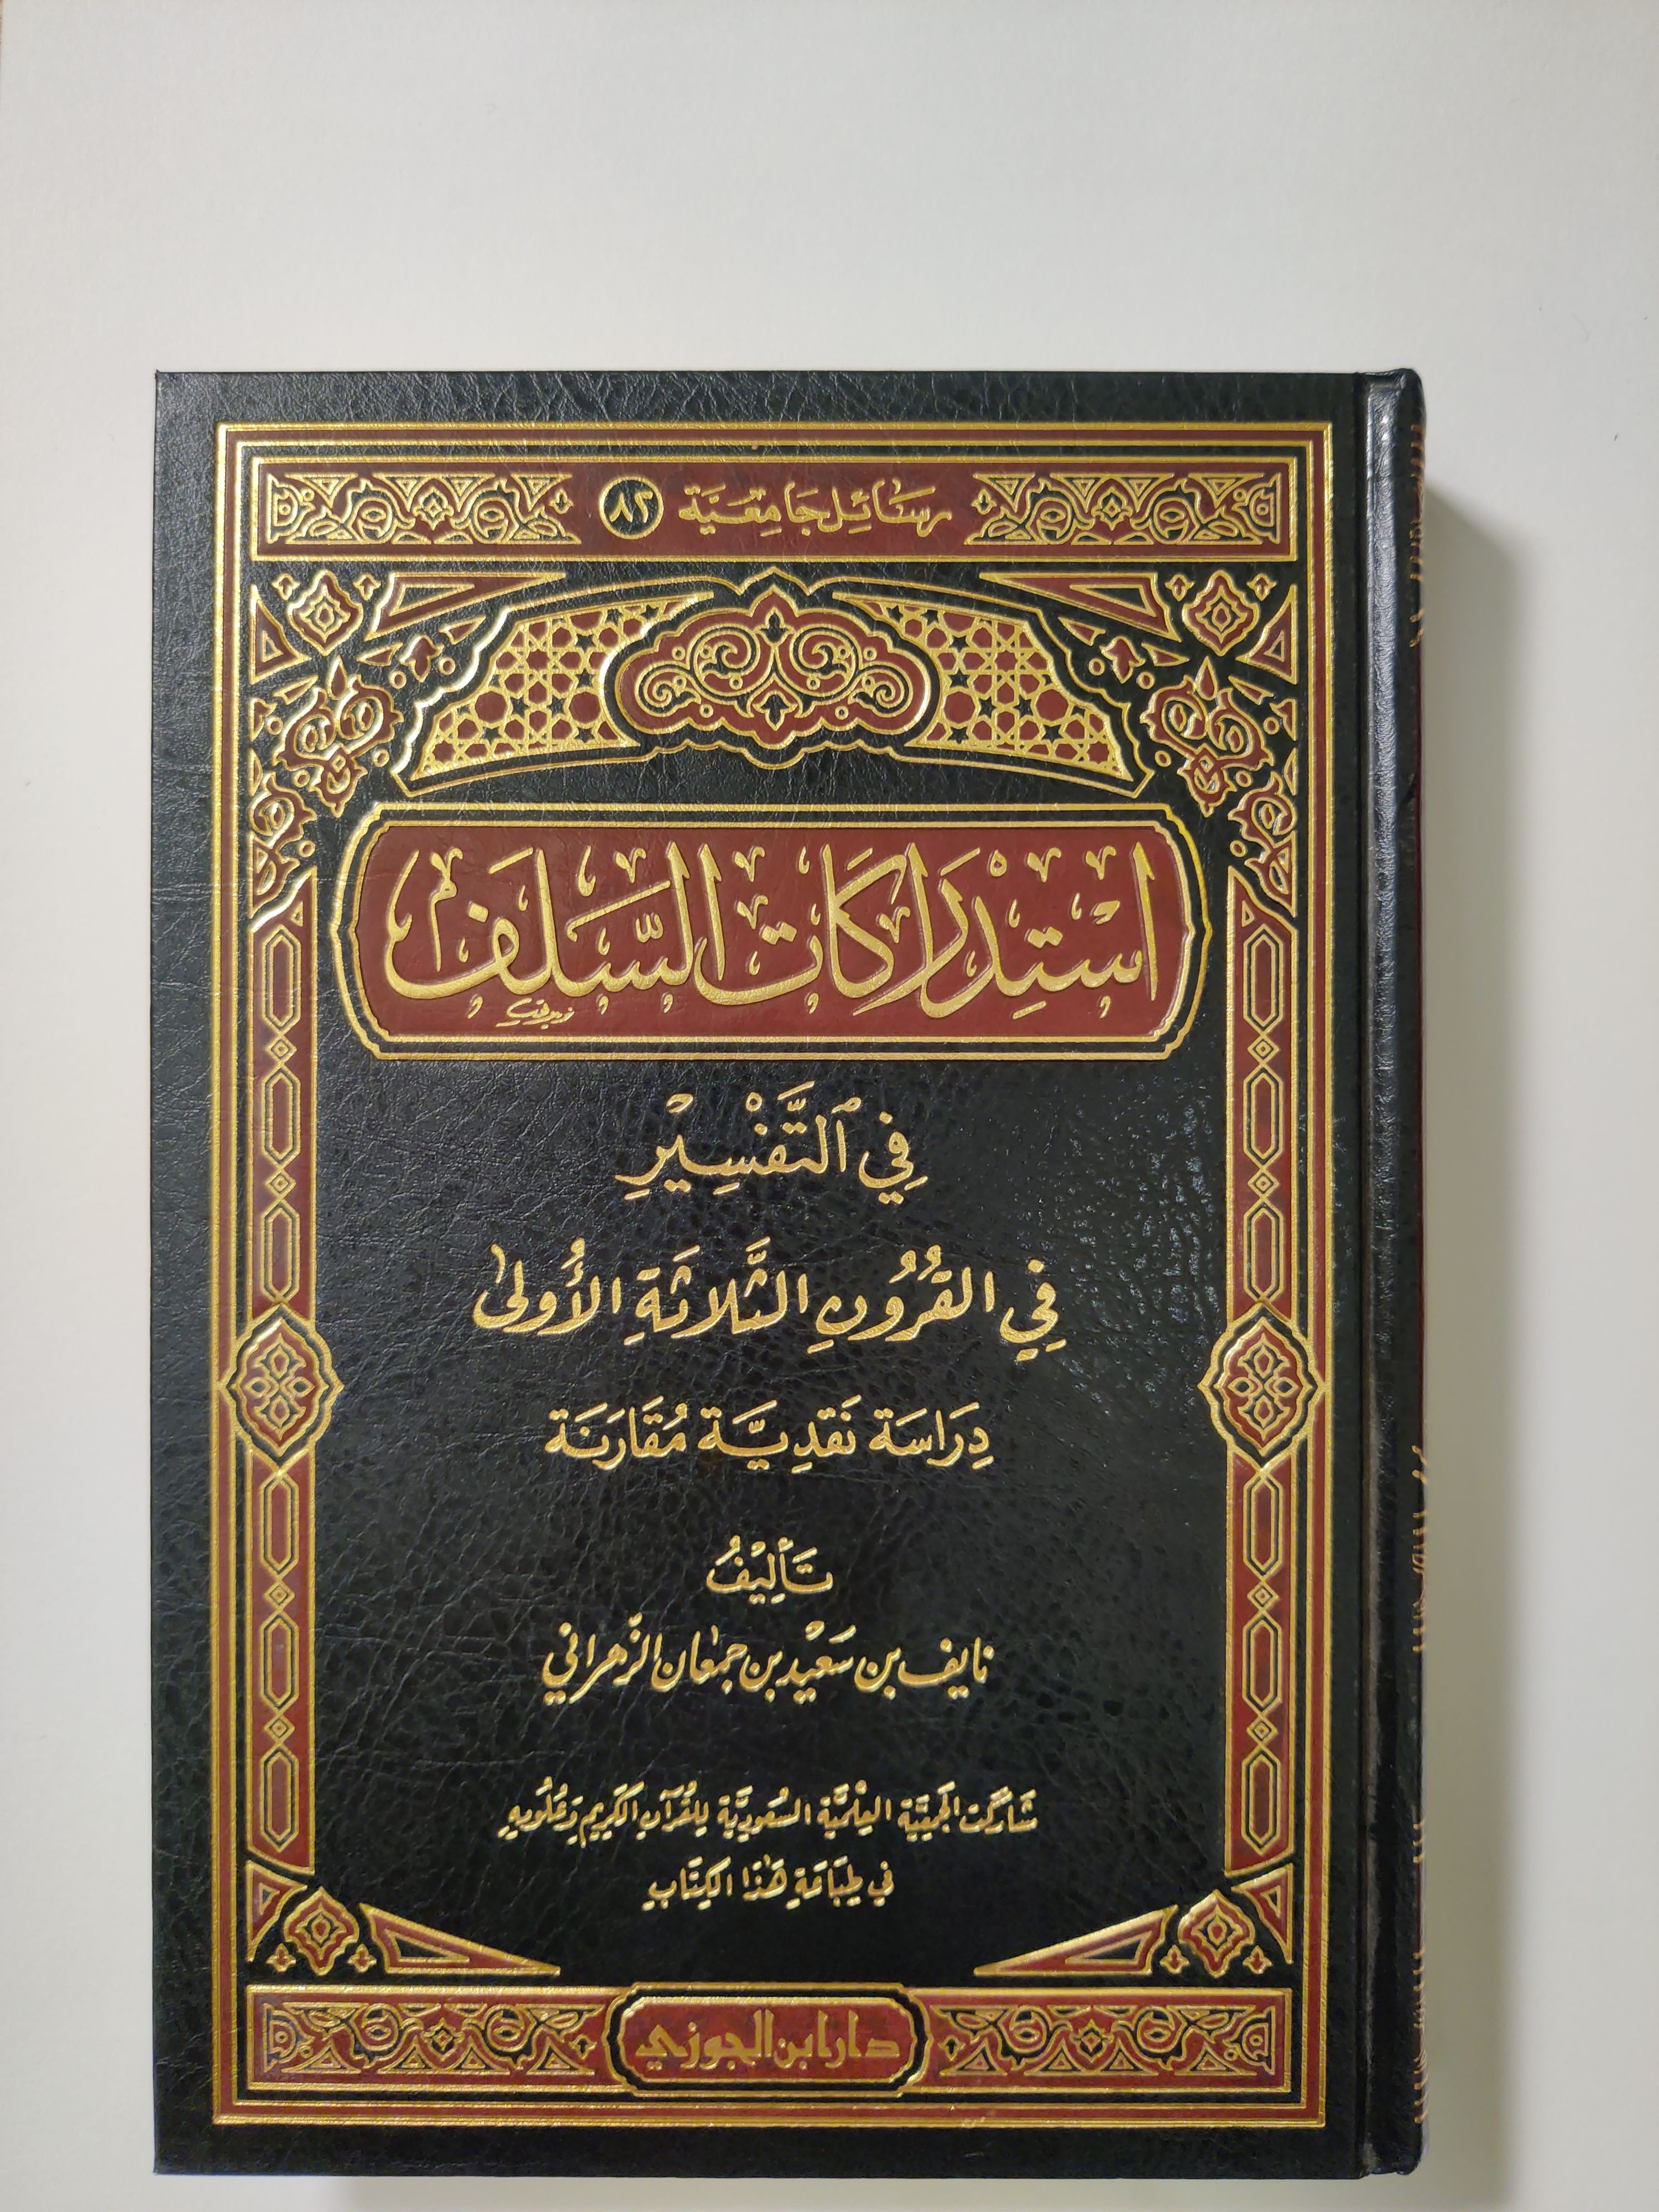 رَسَائِل جَامِعِيَّة ٨٢
اسْتِدْرَاكَات السَّلَف
فِي التَّفْسِيْرِ
فِي القُرُونِ الثَّلاثَةِ الأُولىٰ
دِرَاسَة نَقدِيَّة مُقَارَنَة
تَأْلِيْفُ
نايف بن سَعيْد بن جمعَان الزّهراني
شَارَكَت الجَمْعِيَّة العِلْميَّة السُّعُودِيَّة لِلقُرآنِ الكَرِيمِ وَعُلُومِهِ
في طِبَاعَةِ هَذَا الكِتَابِ
دار ابن الجوزي